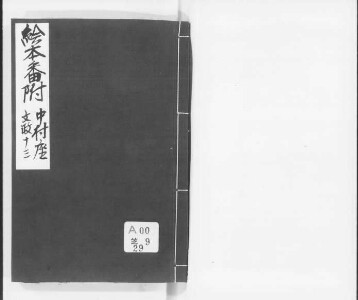 絵本番附
中村座
文政十三
A00
芝9
29